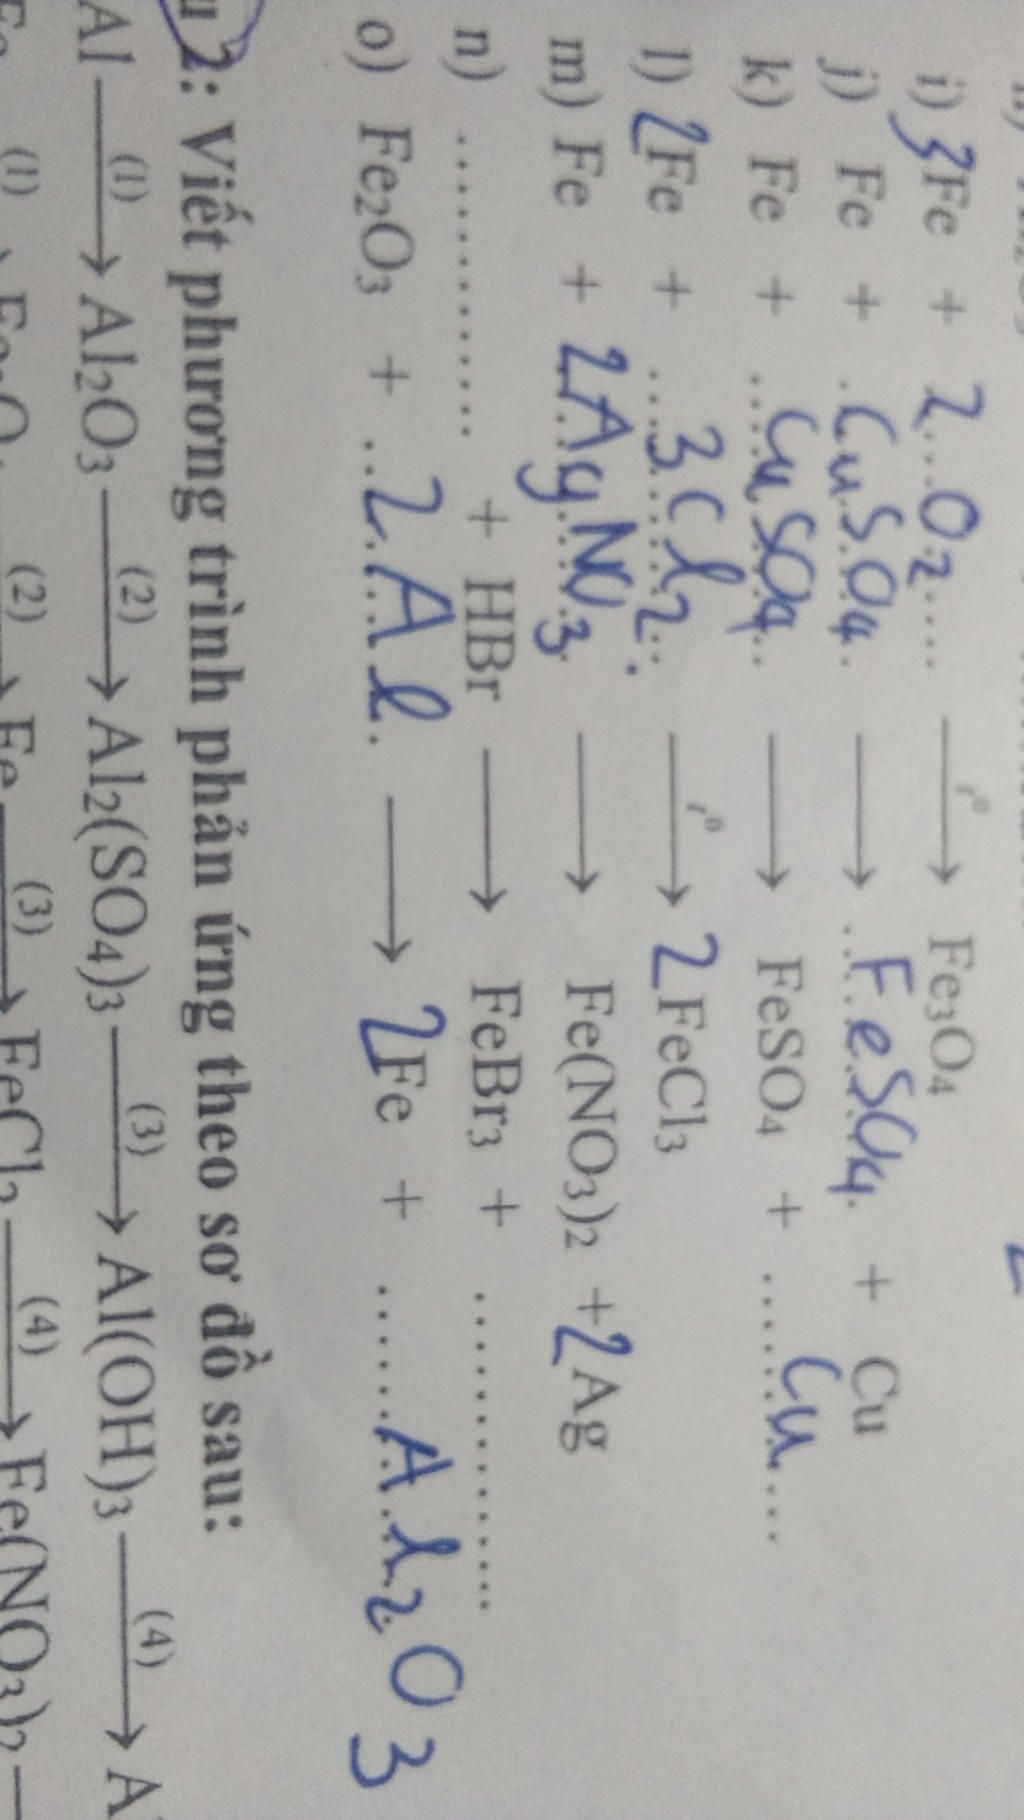 i) 3Fe + 2...O₂.... —t⁰→ Fe₃O₄
j) Fe + .CuSO₄. → ....FeSO₄. + Cu
k) Fe + ....CuSO₄.. → FeSO₄ + ......Cu...
l) 2Fe + ....3Cl₂.. —t⁰→ 2FeCl₃
m) Fe + 2AgNO₃. → Fe(NO₃)₂ + 2Ag
n) .............. + HBr → FeBr₃ + ..............
o) Fe₂O₃ + ..2Al. → 2Fe + ......Al₂O₃
2: Viết phương trình phản ứng theo sơ đồ sau:
Al —(1)→ Al₂O₃ —(2)→ Al₂(SO₄)₃ —(3)→ Al(OH)₃ —(4)→ A
(1) (2) Fe (3) (4) Fe(NO₃)₂